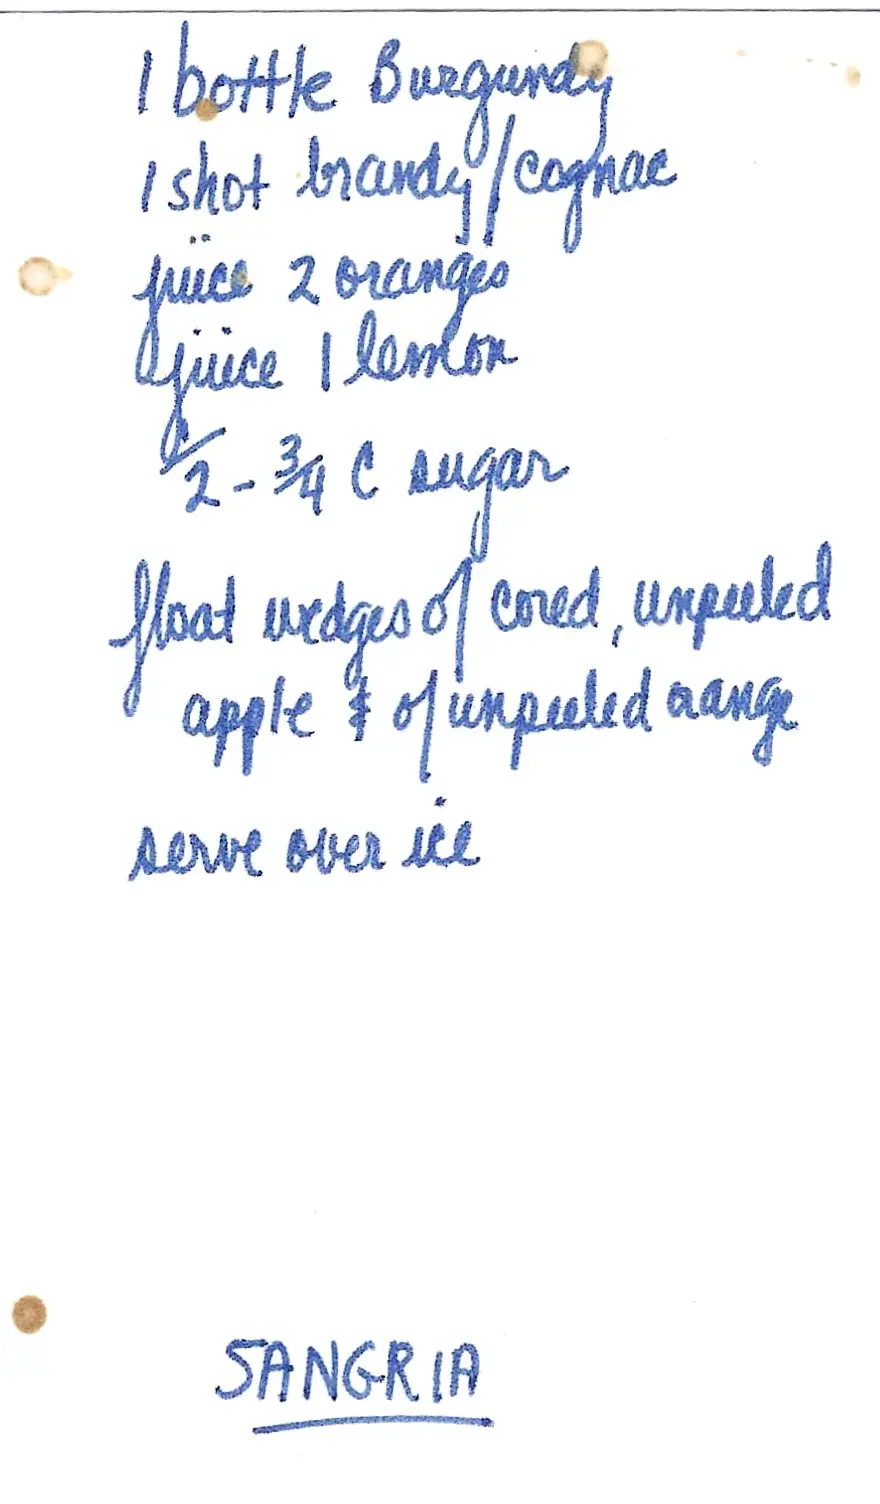 1 bottle Burgundy
1 shot brandy/cognac
juice 2 oranges
juice 1 lemon
1/2 - 3/4 C sugar
float wedges of cored, unpeeled
apple & of unpeeled orange
serve over ice
SANGRIA